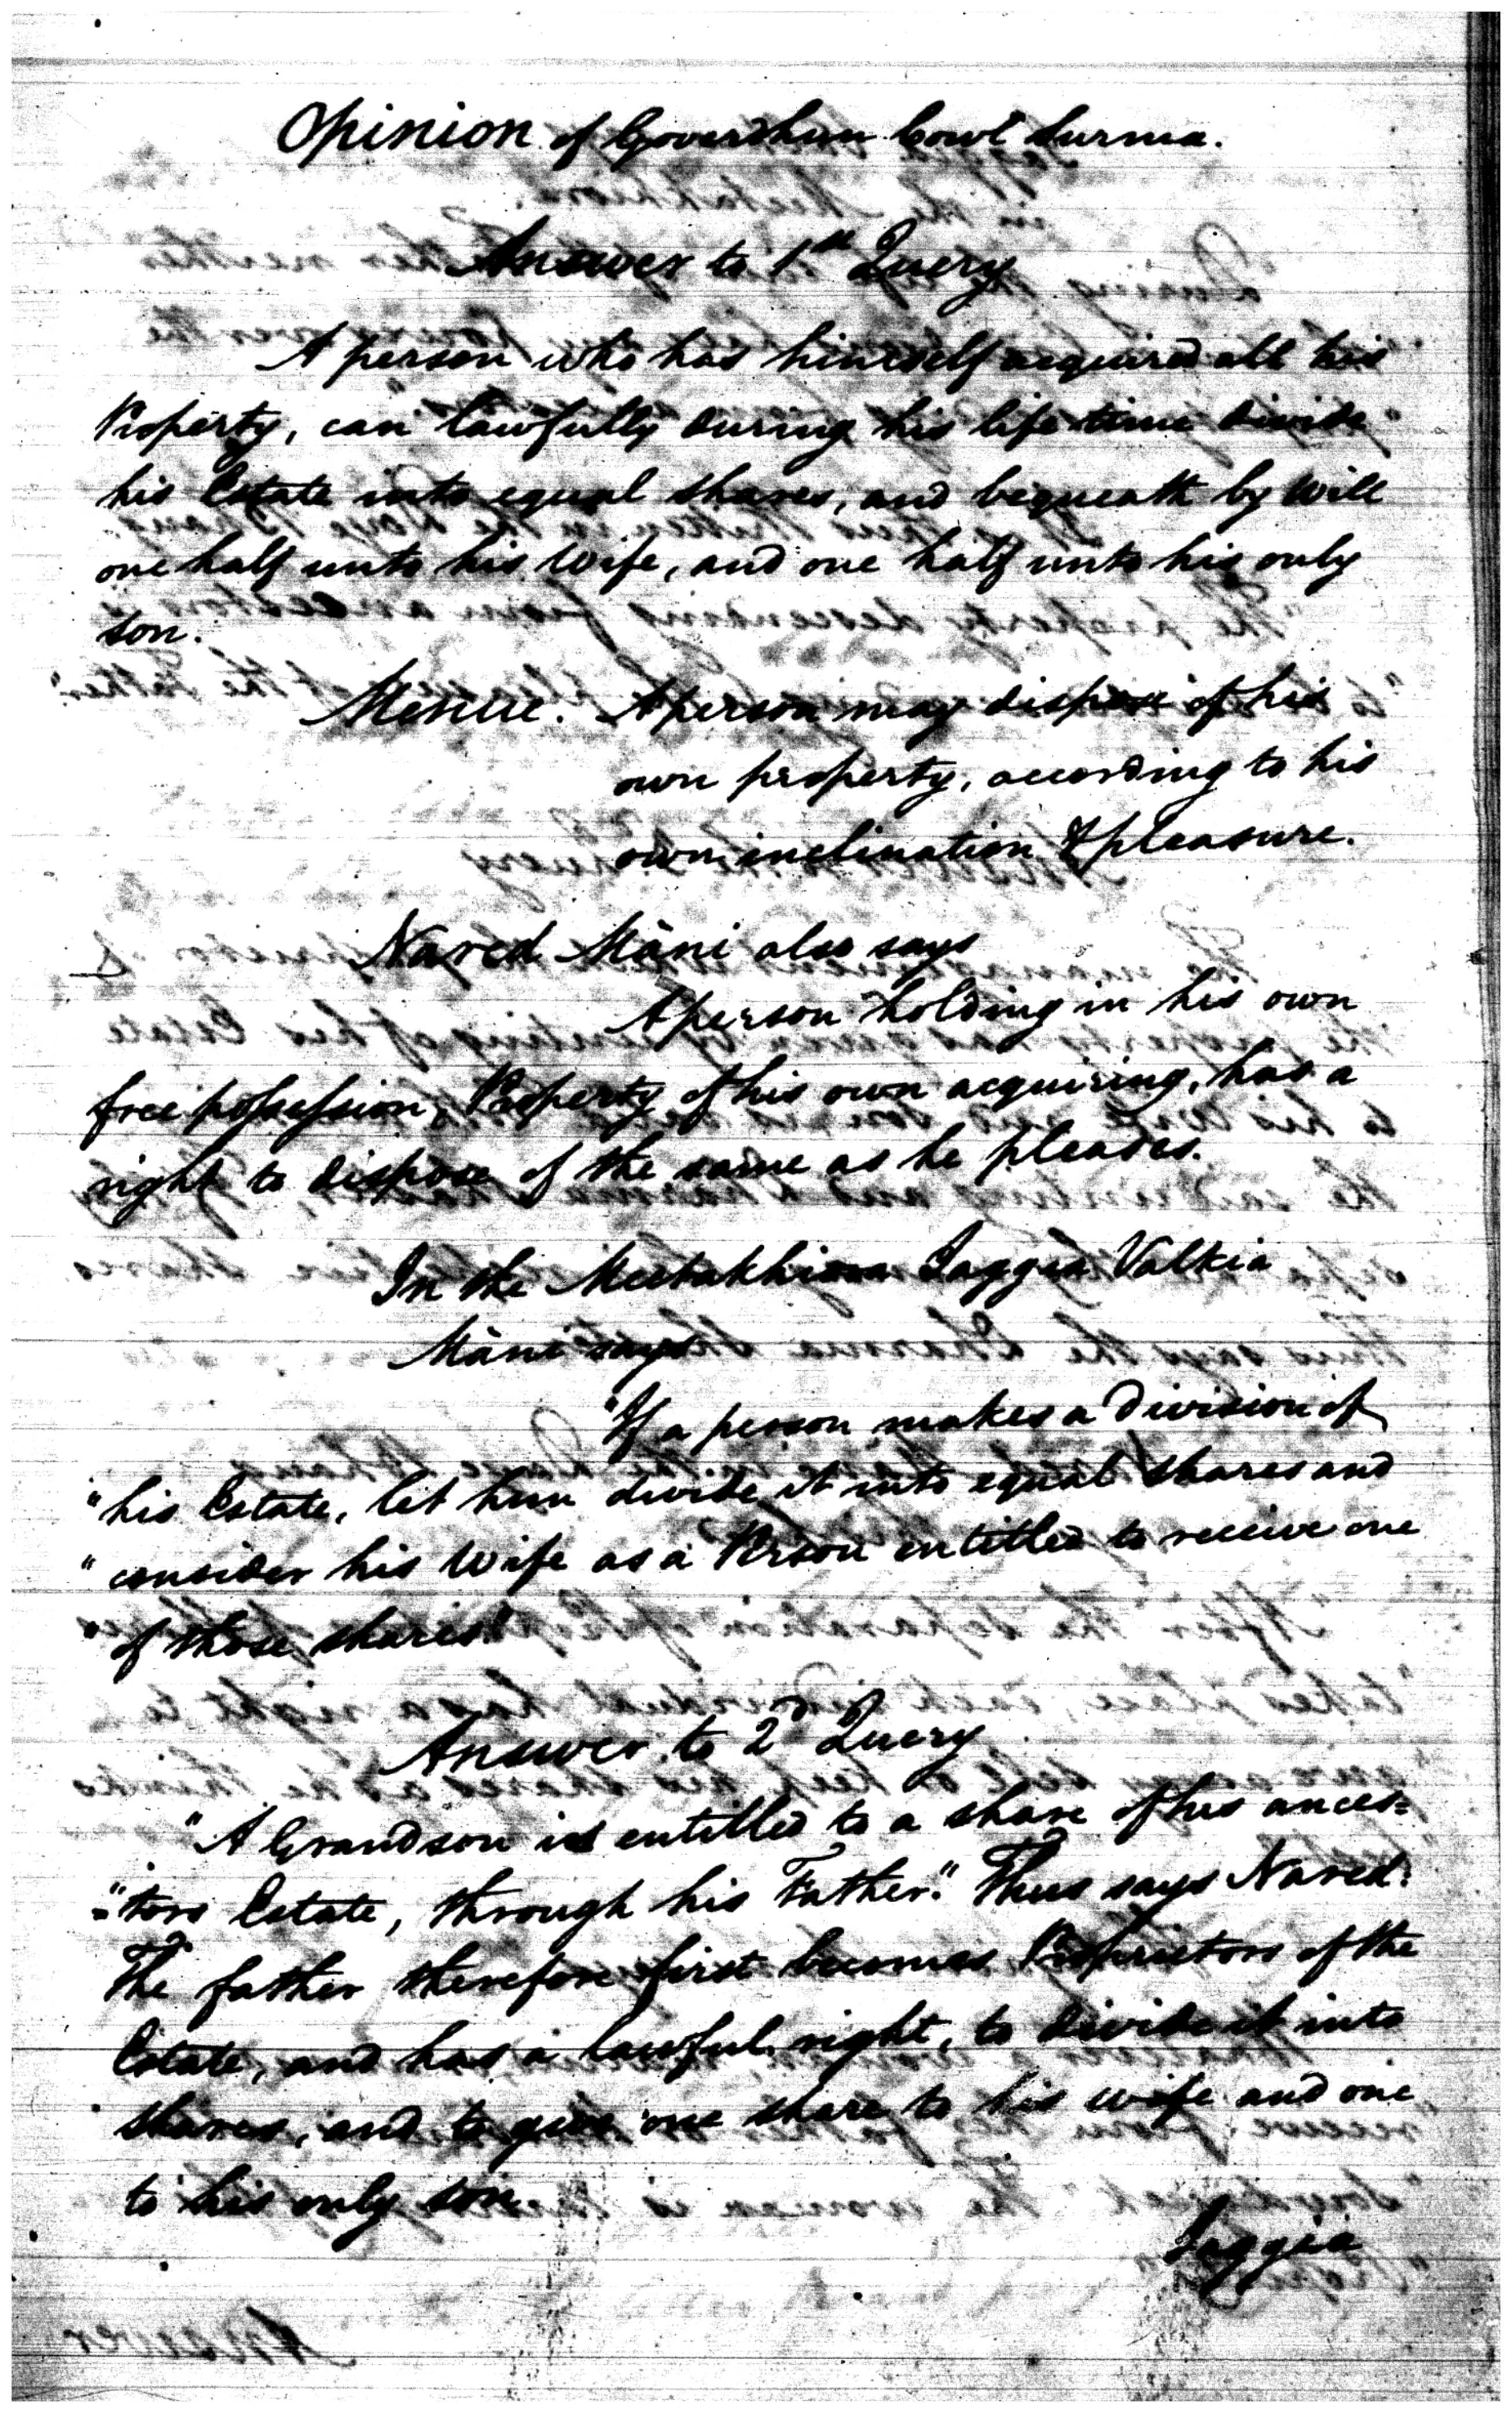 Opinion of Goverdhun Cowl Surma.
Answer to 1st Query
A person who has himself acquired all his
Property, can lawfully during his life time divide
his Estate into equal shares, and bequeath by Will
one half unto his Wife, and one half unto his only
son.
A person may dispose of his
own property, according to his
own inclination & pleasure.
Nared Màni also says
A person holding in his own
free possession, Property of his own acquiring, has a
right to dispose of the same as he pleases.
In the Meetakhiora Jaggia Valkia
Màni says
"If a person makes a Division of
"his Estate, let him divide it into equal shares and
"consider his Wife as a Person entitled to receive one
"of those shares"
Answer to 2d Query
"A Grandson is entitled to a share of his ances=
"=tors Estate, through his Father." Thus says Nared.
The father therefore first becomes Proprietors of the
Estate, and has a lawful right, to divide it into
shares, and to give one share to his wife and one
to his only son.
Jaggia